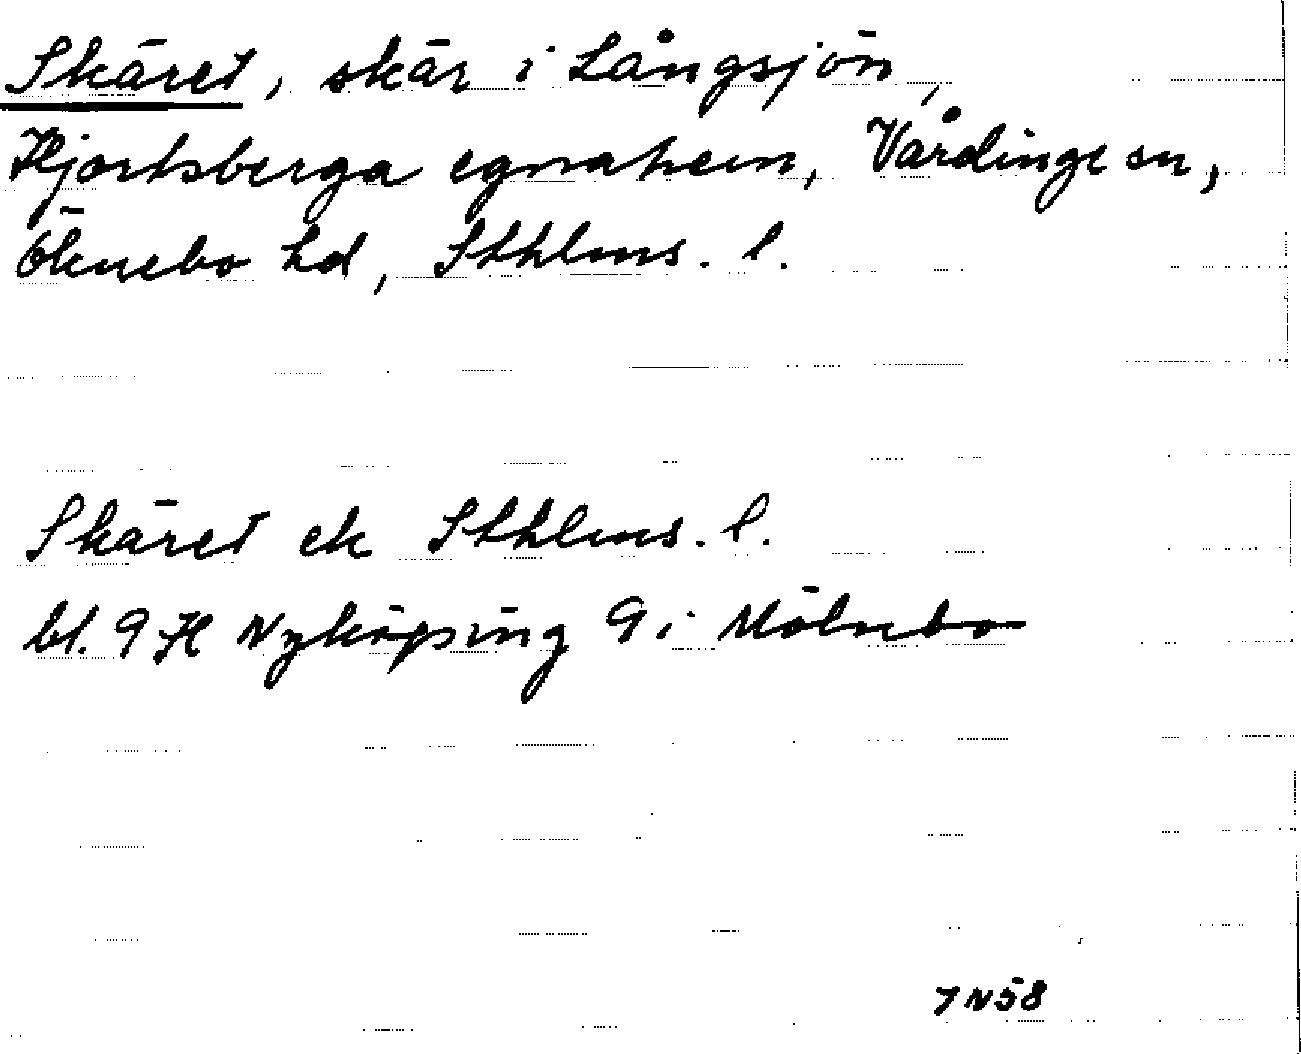 Skäret, skär i Långsjön,
Hjortsberga egnahem, Vårdinge sn,
Öknebo hd, Sthlms. l.
Skäret ek Sthlms. l.
bl. 9 H Nyköping 9 i Mölnbo
7N58